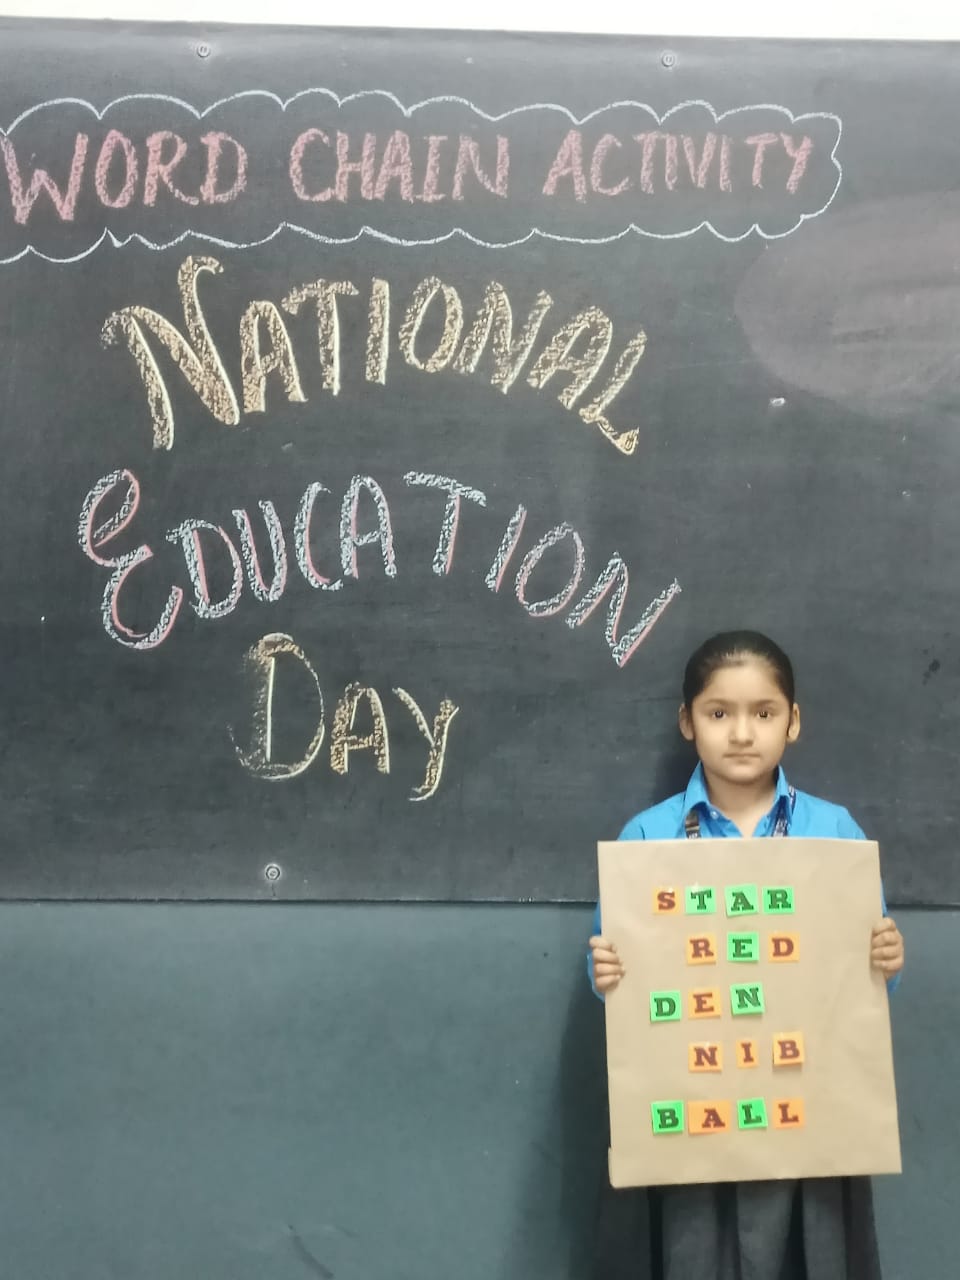 WORD CHAIN ACTIVITY
NATIONAL
EDUCATION
DAY
STAR
RED
DEN
NIB
BALL